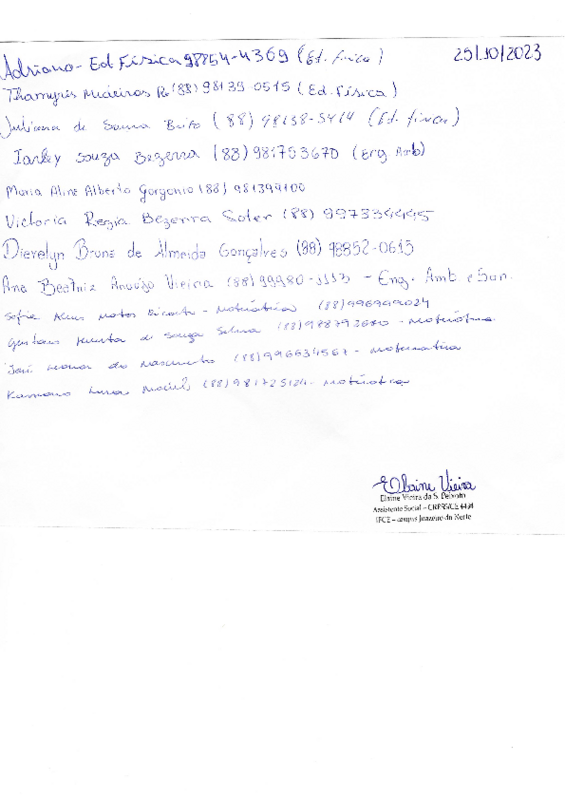 Adriano - Ed Física 98854-4369 (Ed. física) 25/10/2023
Thamyris Medeiros (88) 98139-0515 (Ed. Física)
Juliana de Sousa Brito (88) 98158-5414 (Ed. física)
Iarley Souza Bezerra (88) 981753670 (Eng Amb)
Maria Aline Alberto Gorgonio (88) 981399100
Victoria Regia Bezerra Soter (88) 997334445
Dievelyn Bruna de Almeida Gonçalves (88) 98852-0613
Ana Beatriz Araújo Vieira (88) 99980- - Eng. Amb. e San.
Sofia Matos - Matemática (88) 996949024
Gustavo de Souza - Matemática
José do Nascimento (88) 996634567 - Matemática
Maciel (88) 981725124 - Matemática
Elaine Vieira
Elaine Vieira da S. Peixoto
Assistente Social - CRESS/CE
IFCE - campus Juazeiro do Norte